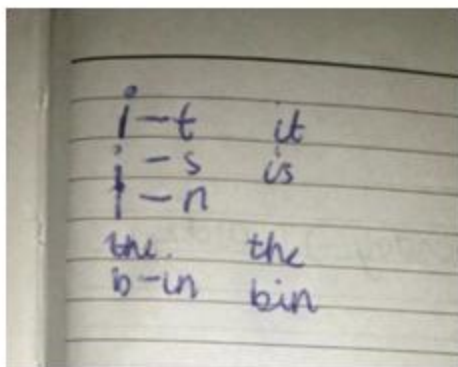 i-t it
i-s is
i-n
the. the
b-in bin